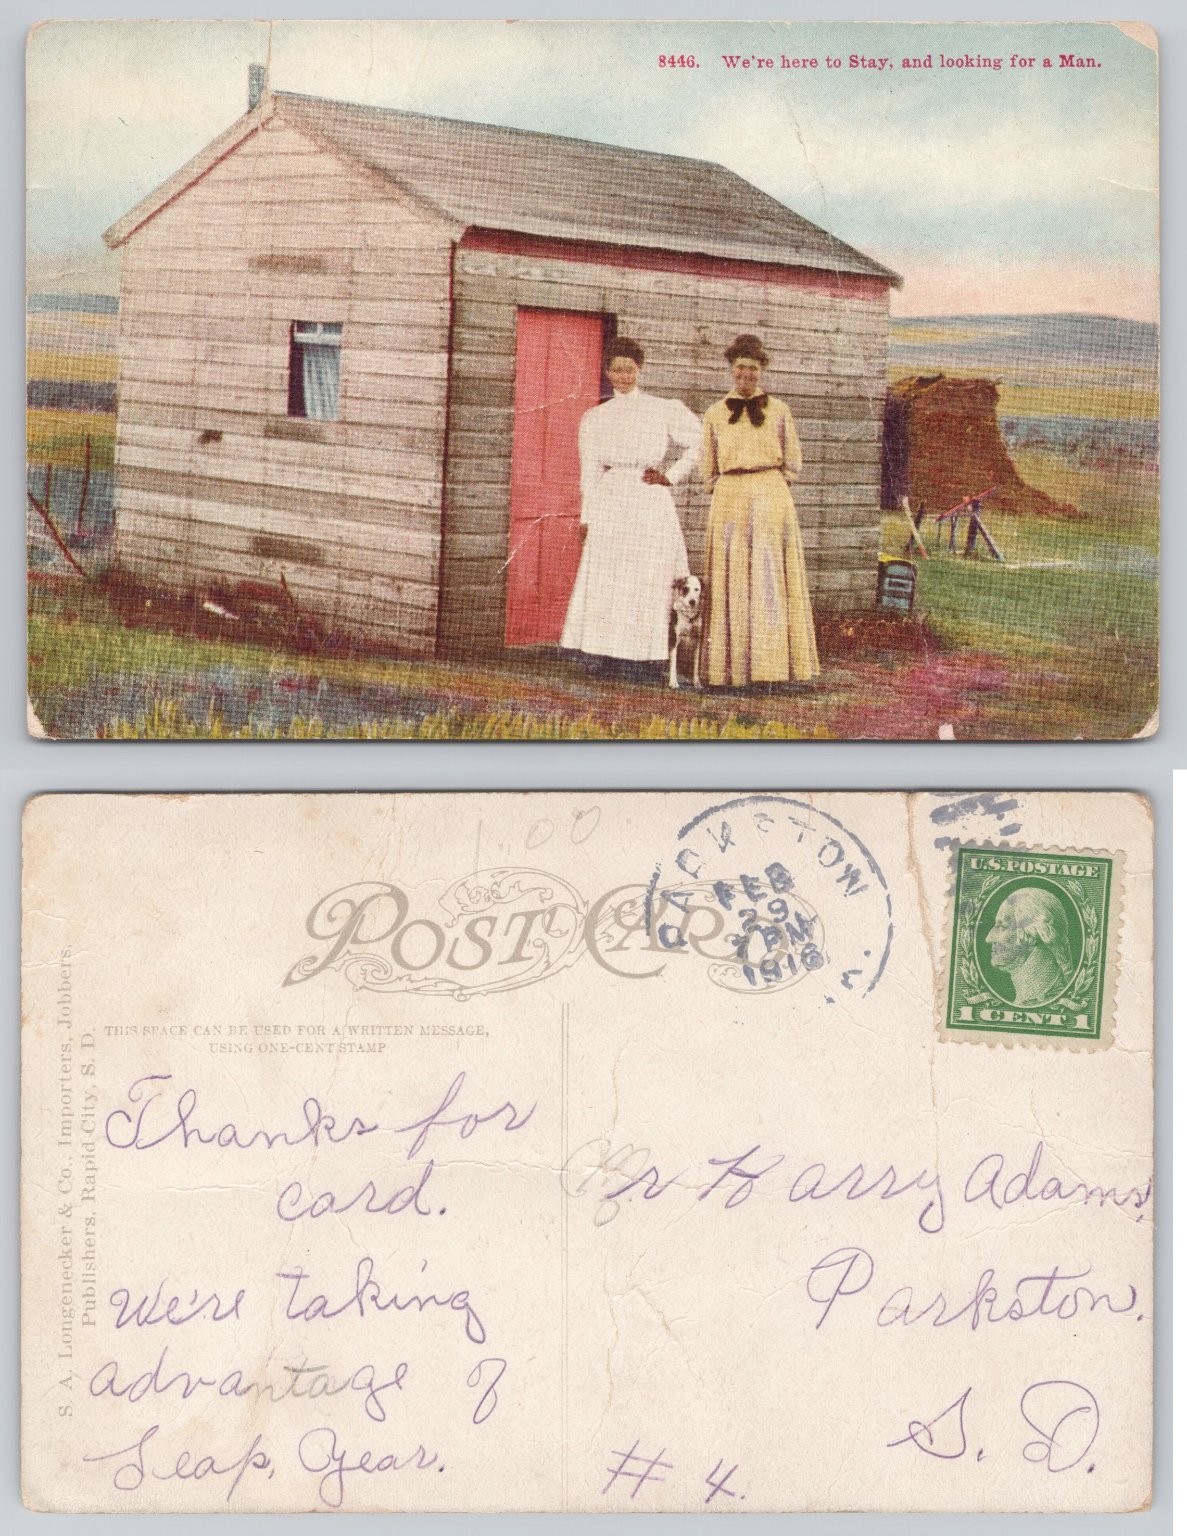 8446. We're here to Stay, and looking for a Man.
POST CARD
1.00
PARKSTON
FEB
29
7 PM
1916
S.
U.S.POSTAGE
1 CENT 1
THIS SPACE CAN BE USED FOR A WRITTEN MESSAGE,
USING ONE-CENT STAMP
S. A. Longenecker & Co., Importers, Jobbers,
Publishers, Rapid City, S. D.
Thanks for
card.
We're taking
advantage of
Leap, Year.
Mr Harry Adams,
Parkston.
S. D.
# 4.